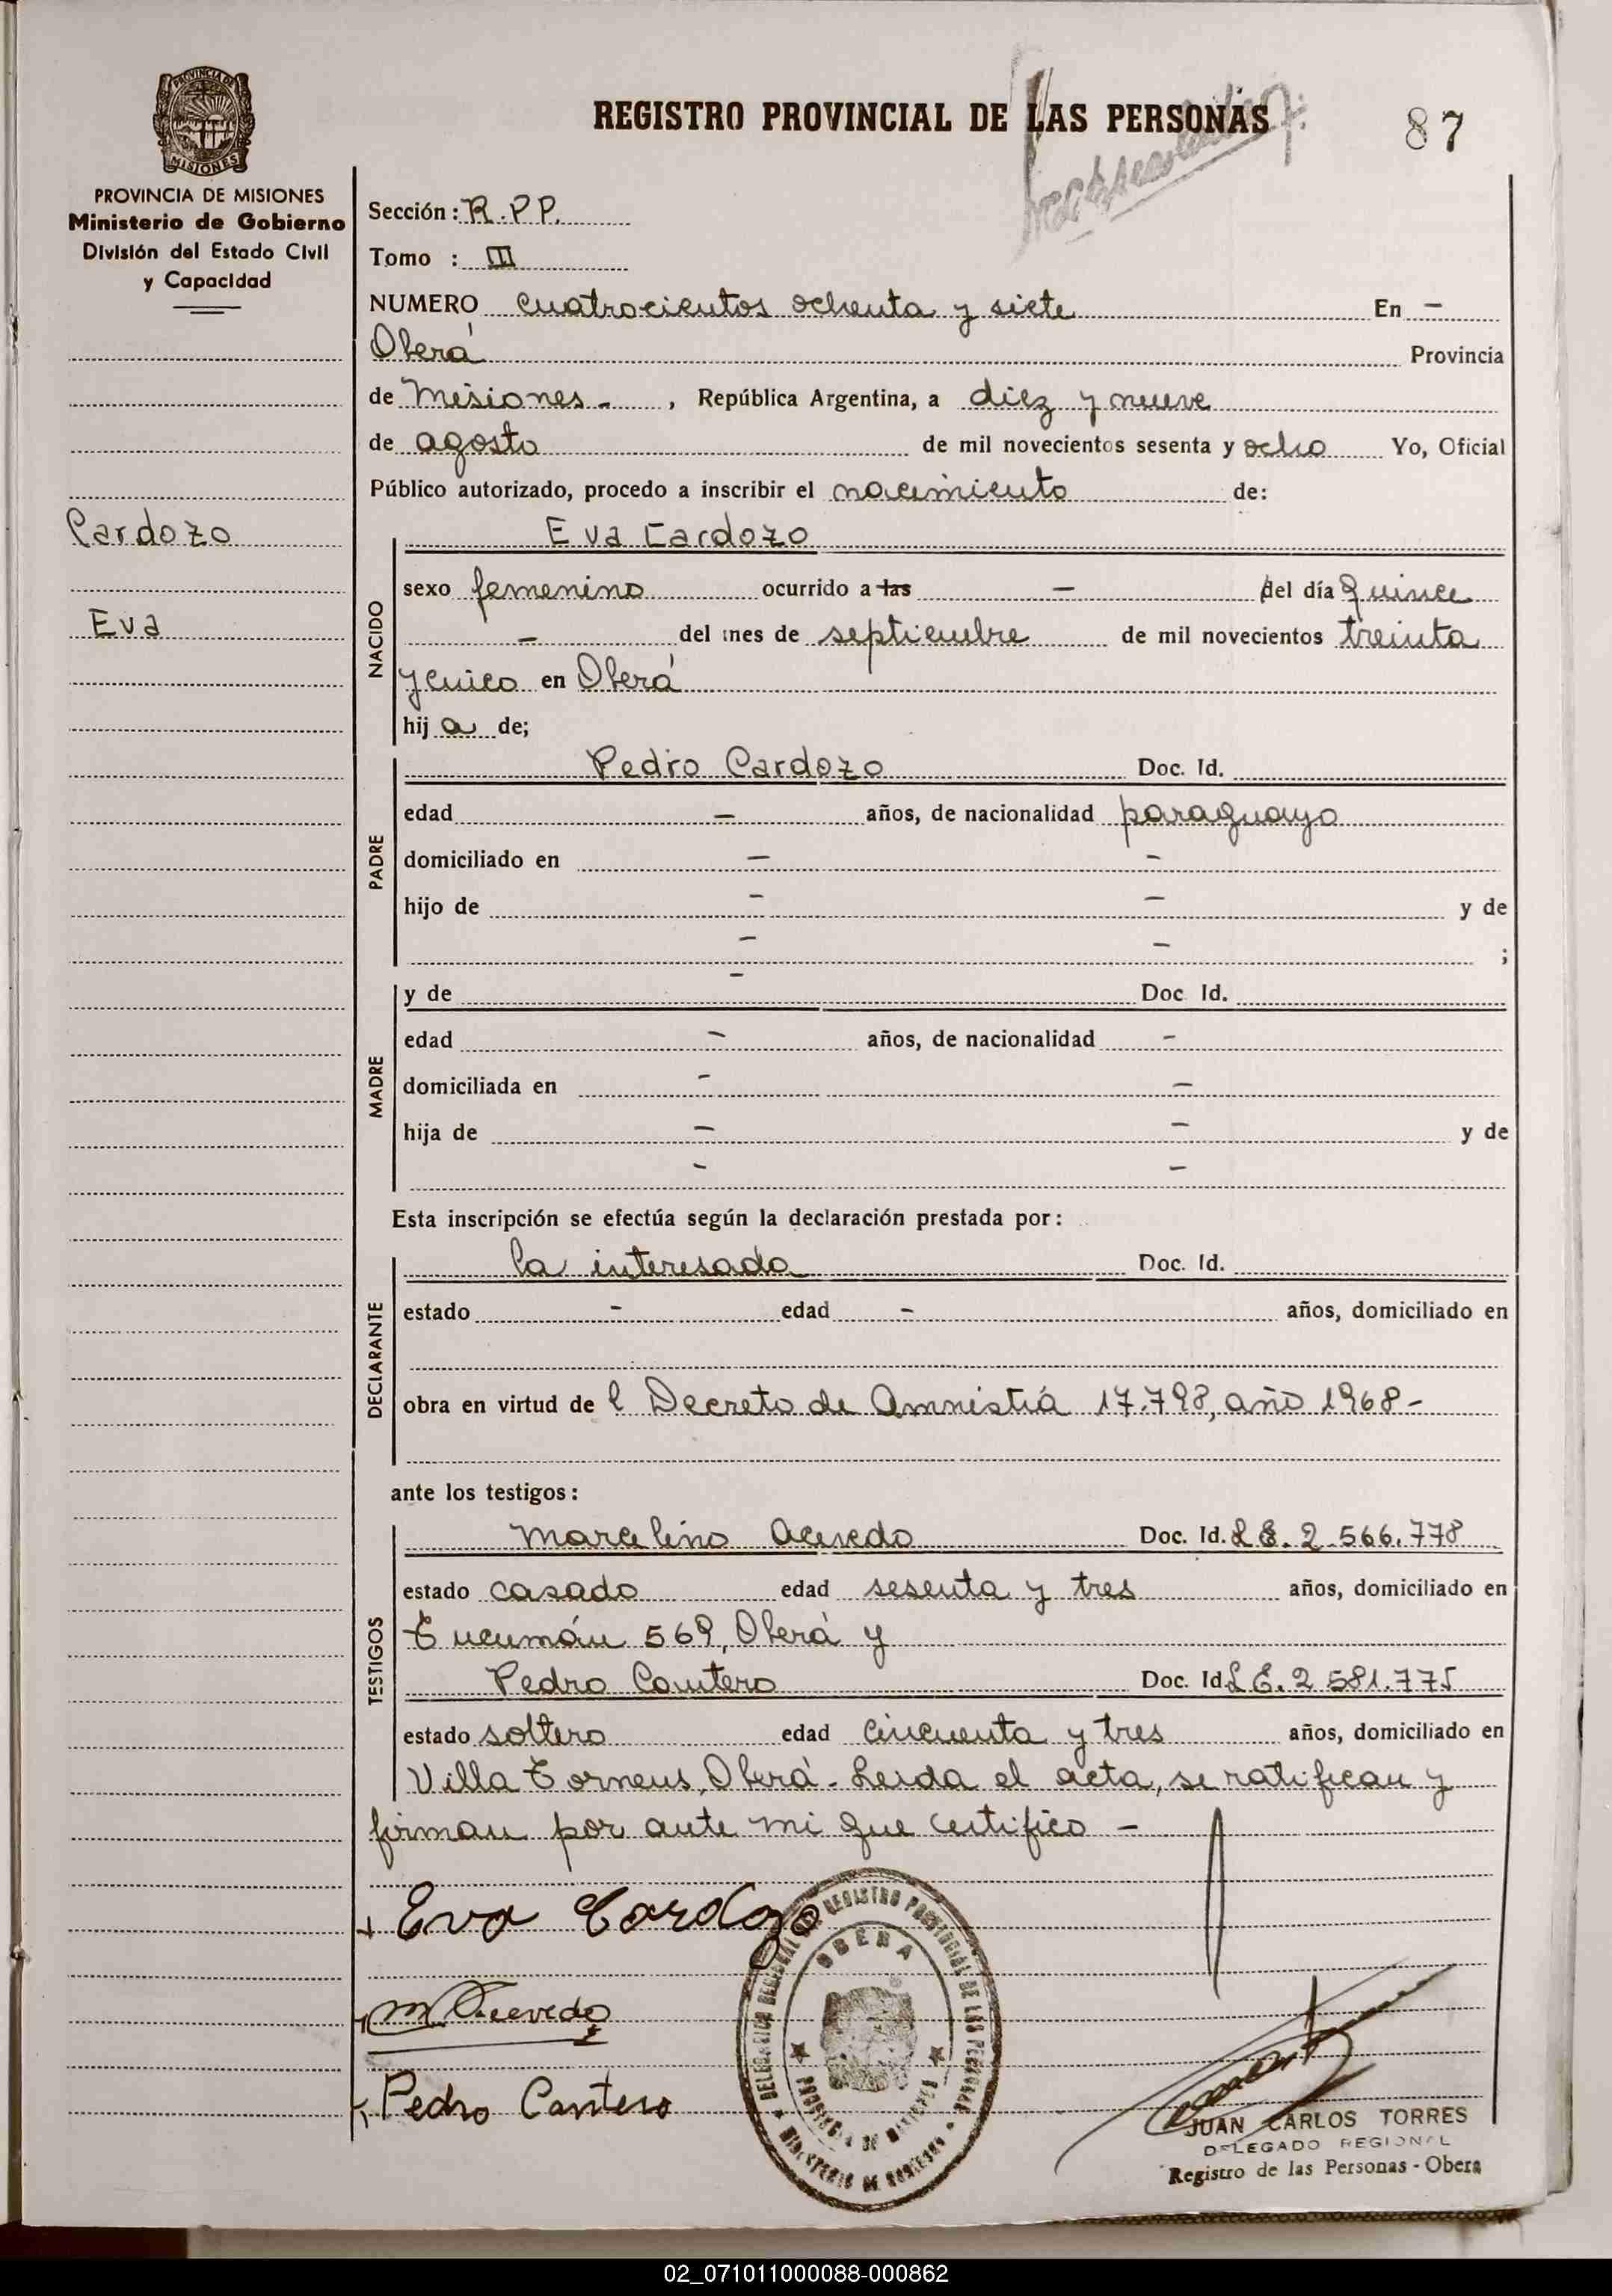 REGISTRO PROVINCIAL DE LAS PERSONAS
87
PROVINCIA DE MISIONES
PROVINCIA DE MISIONES
Ministerio de Gobierno
División del Estado Civil
y Capacidad
Cardozo
Eva
Sección: R.P.P.
Tomo : III
NUMERO cuatrocientos ochenta y siete En –
Oberá Provincia
de Misiones - , República Argentina, a diez y nueve
de agosto de mil novecientos sesenta y ocho Yo, Oficial
Público autorizado, procedo a inscribir el nacimiento de:
NACIDO
Eva Cardozo
sexo femenino ocurrido a las – del día quince
– del mes de septiembre de mil novecientos treinta
y cinco en Oberá
hij a de;
PADRE
Pedro Cardozo Doc. Id.
edad – años, de nacionalidad paraguayo
domiciliado en – –
hijo de – – y de
– – ;
MADRE
y de – Doc. Id.
edad – años, de nacionalidad –
domiciliada en – –
hija de – – y de
– –
Esta inscripción se efectúa según la declaración prestada por:
DECLARANTE
la interesada Doc. Id.
estado – edad – años, domiciliado en
obra en virtud de l Decreto de Amnistiá 17.798, año 1968 -
ante los testigos:
TESTIGOS
Marcelino Acevedo Doc. Id. L E. 2.566.778
estado casado edad sesenta y tres años, domiciliado en
Tucumán 569, Oberá y
Pedro Cantero Doc. Id. L E. 2 581.775
estado soltero edad cincuenta y tres años, domiciliado en
Villa Torneus, Oberá - Leida el acta, se ratifican y
firman por ante mi que certifico -
Eva Cardozo
M Acevedo
Pedro Cantero
DELEGACION REGIONAL DEL REGISTRO PROVINCIAL DE LAS PERSONAS
OBERA
PROVINCIA DE MISIONES
MINISTERIO DE GOBIERNO
JUAN CARLOS TORRES
DELEGADO REGIONAL
Registro de las Personas - Obera
02_071011000088-000862